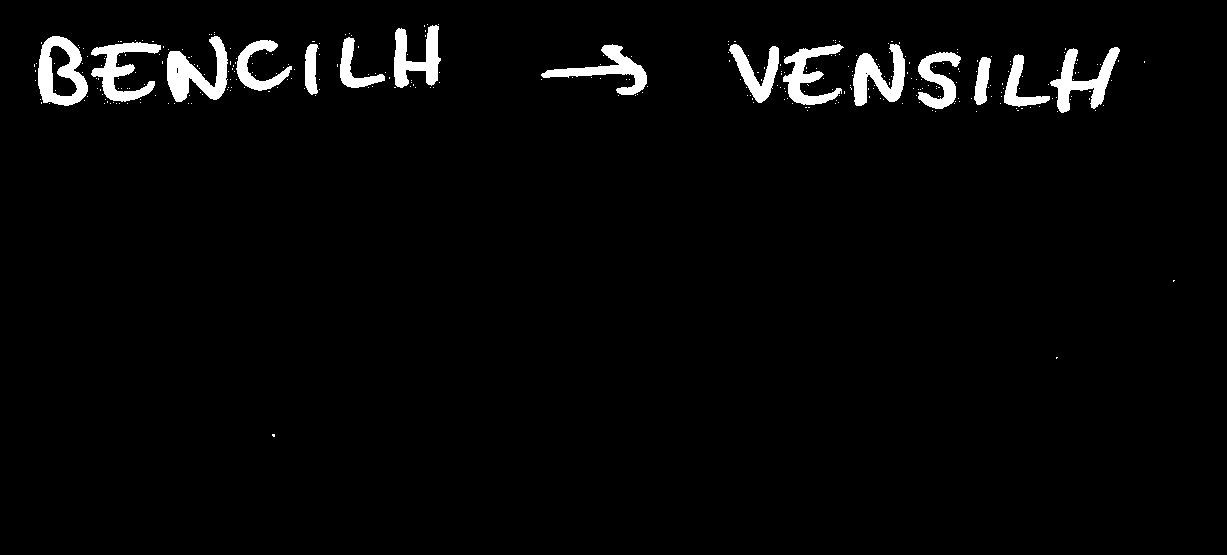 BENCILH → VENSILH